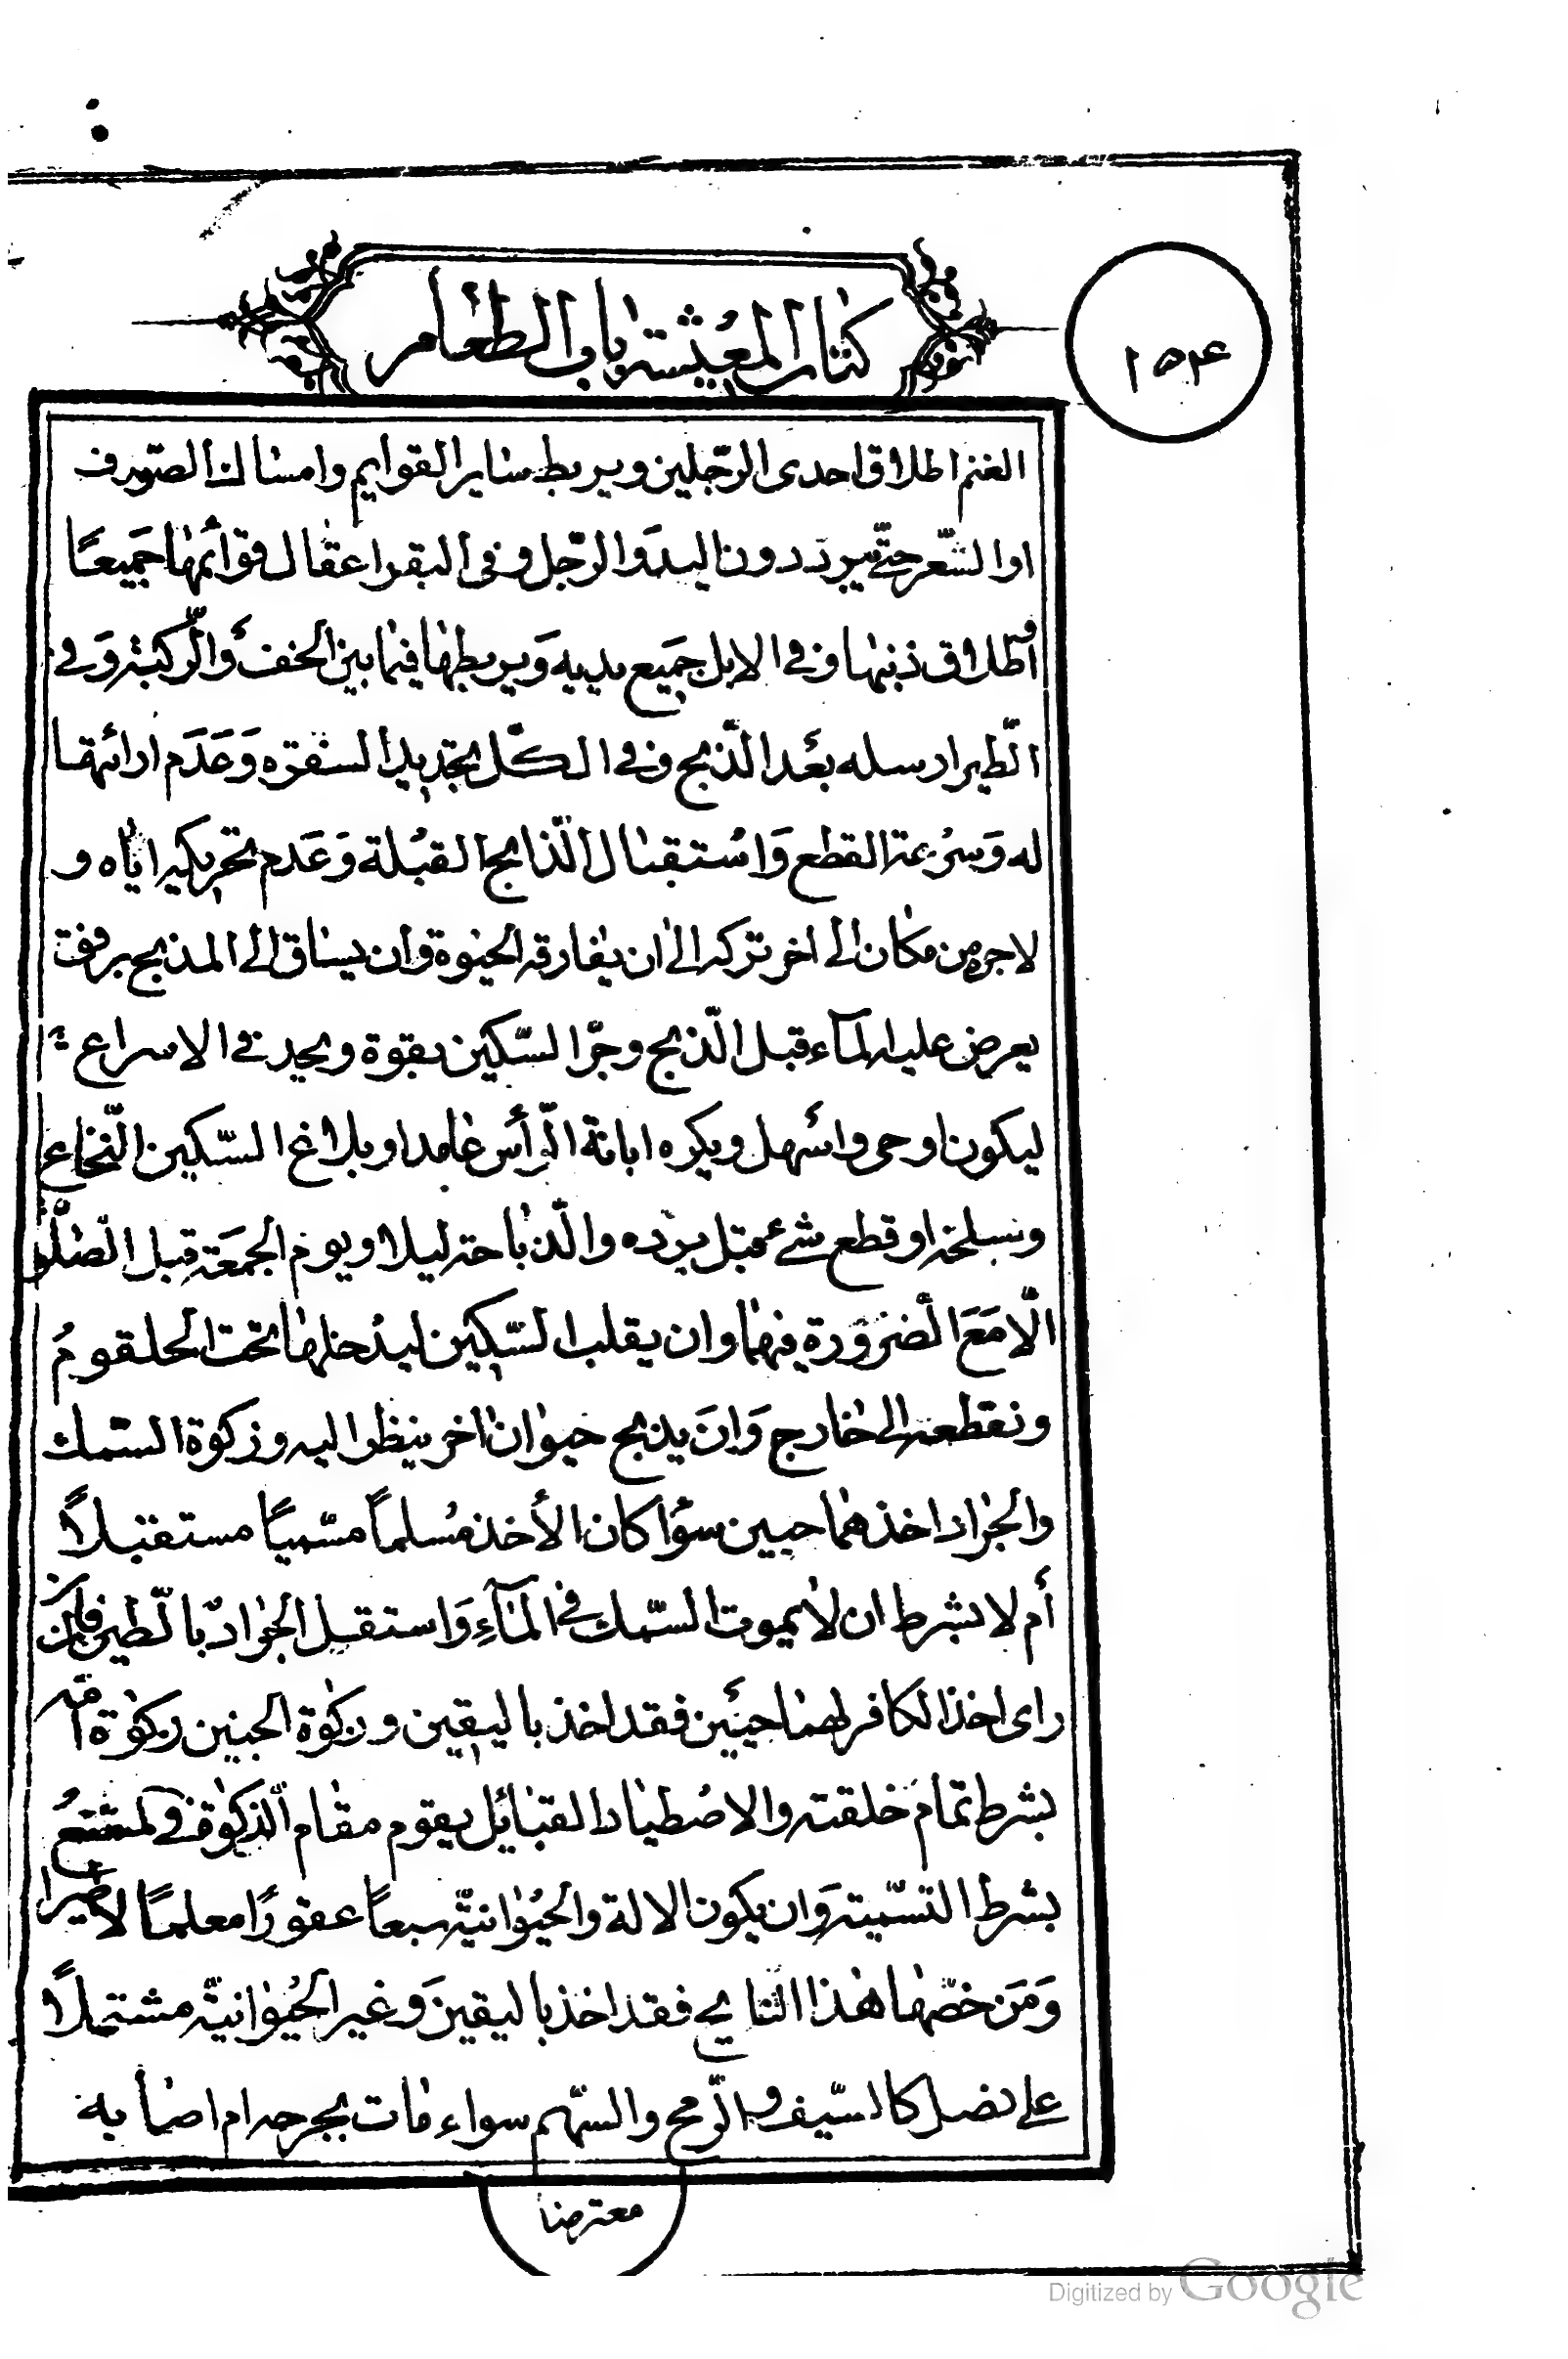 ١٥٤
كتاب المعيشة باب الطعام
الغنم اطلاق احدى الرّجلين ويربط ساير القوايم وامساك الصّوف
او الشّعر حتّى يبرد دون اليد والرّجل وفي البقر اعقال قوائمها جميعًا
واطلاق ذنبها وفي الابل جميع يديه ويربطها فيما بين الخف والرّكبة وفي
الطّير ارسله بعد الذّبح وفي الكلّ تجديد الشفرة وعدم ارائتها
له وسرعة القطع واستقبال الذّابح القبلة وعدم تحريكه ايّاه و
لا جره من مكان الى اخر تركه الى ان يفارقه الحيوة وان يساق الى المذبح برفق
يعرض عليه المآء قبل الذّبح وجرّ السّكين بقوة ويجد في الاسراع
ليكون اوحى واسهل ويكره ابانة الرّأس عامدا وبلاغ السّكين النّخاع
ونسلخه او قطع شئ قبل برده والذّباحة ليلا ويوم الجمعة قبل الصّلوة
الّا مع الضرورة فيهما وان يقلب السّكين ليدخلها تحت الحلقوم
ونقطعه الى خارج وان يذبح حيوان اخر ينظر اليه وزكوة السّمك
والجراد اخذهما حيين سواء كان الأخذ مسلماً مسّميًا مستقبلًا
أم لا بشرط ان لا يموت السّمك في المآء واستقل الجراد بالطير فان
راى اخذ الكافر لهما حيّين فقد اخذ باليقين وزكوة الجنين زكوة امّه
بشرط تمام خلقته والاصطياد القبائل يقوم مقام الذكوة في الممتنع
بشرط التسمّية وان يكون الالة والحيوانيّة سبعاً عقورًا معلمًا لا غيرا
ومن خصّها هذا التابح فقد اخذ باليقين وغير الحيوانيّة مشتملًا
على نصل كالسّيف والرّمح والسّهم سواء مات بجرحه ام اصابه
معترضا
Digitized by Google